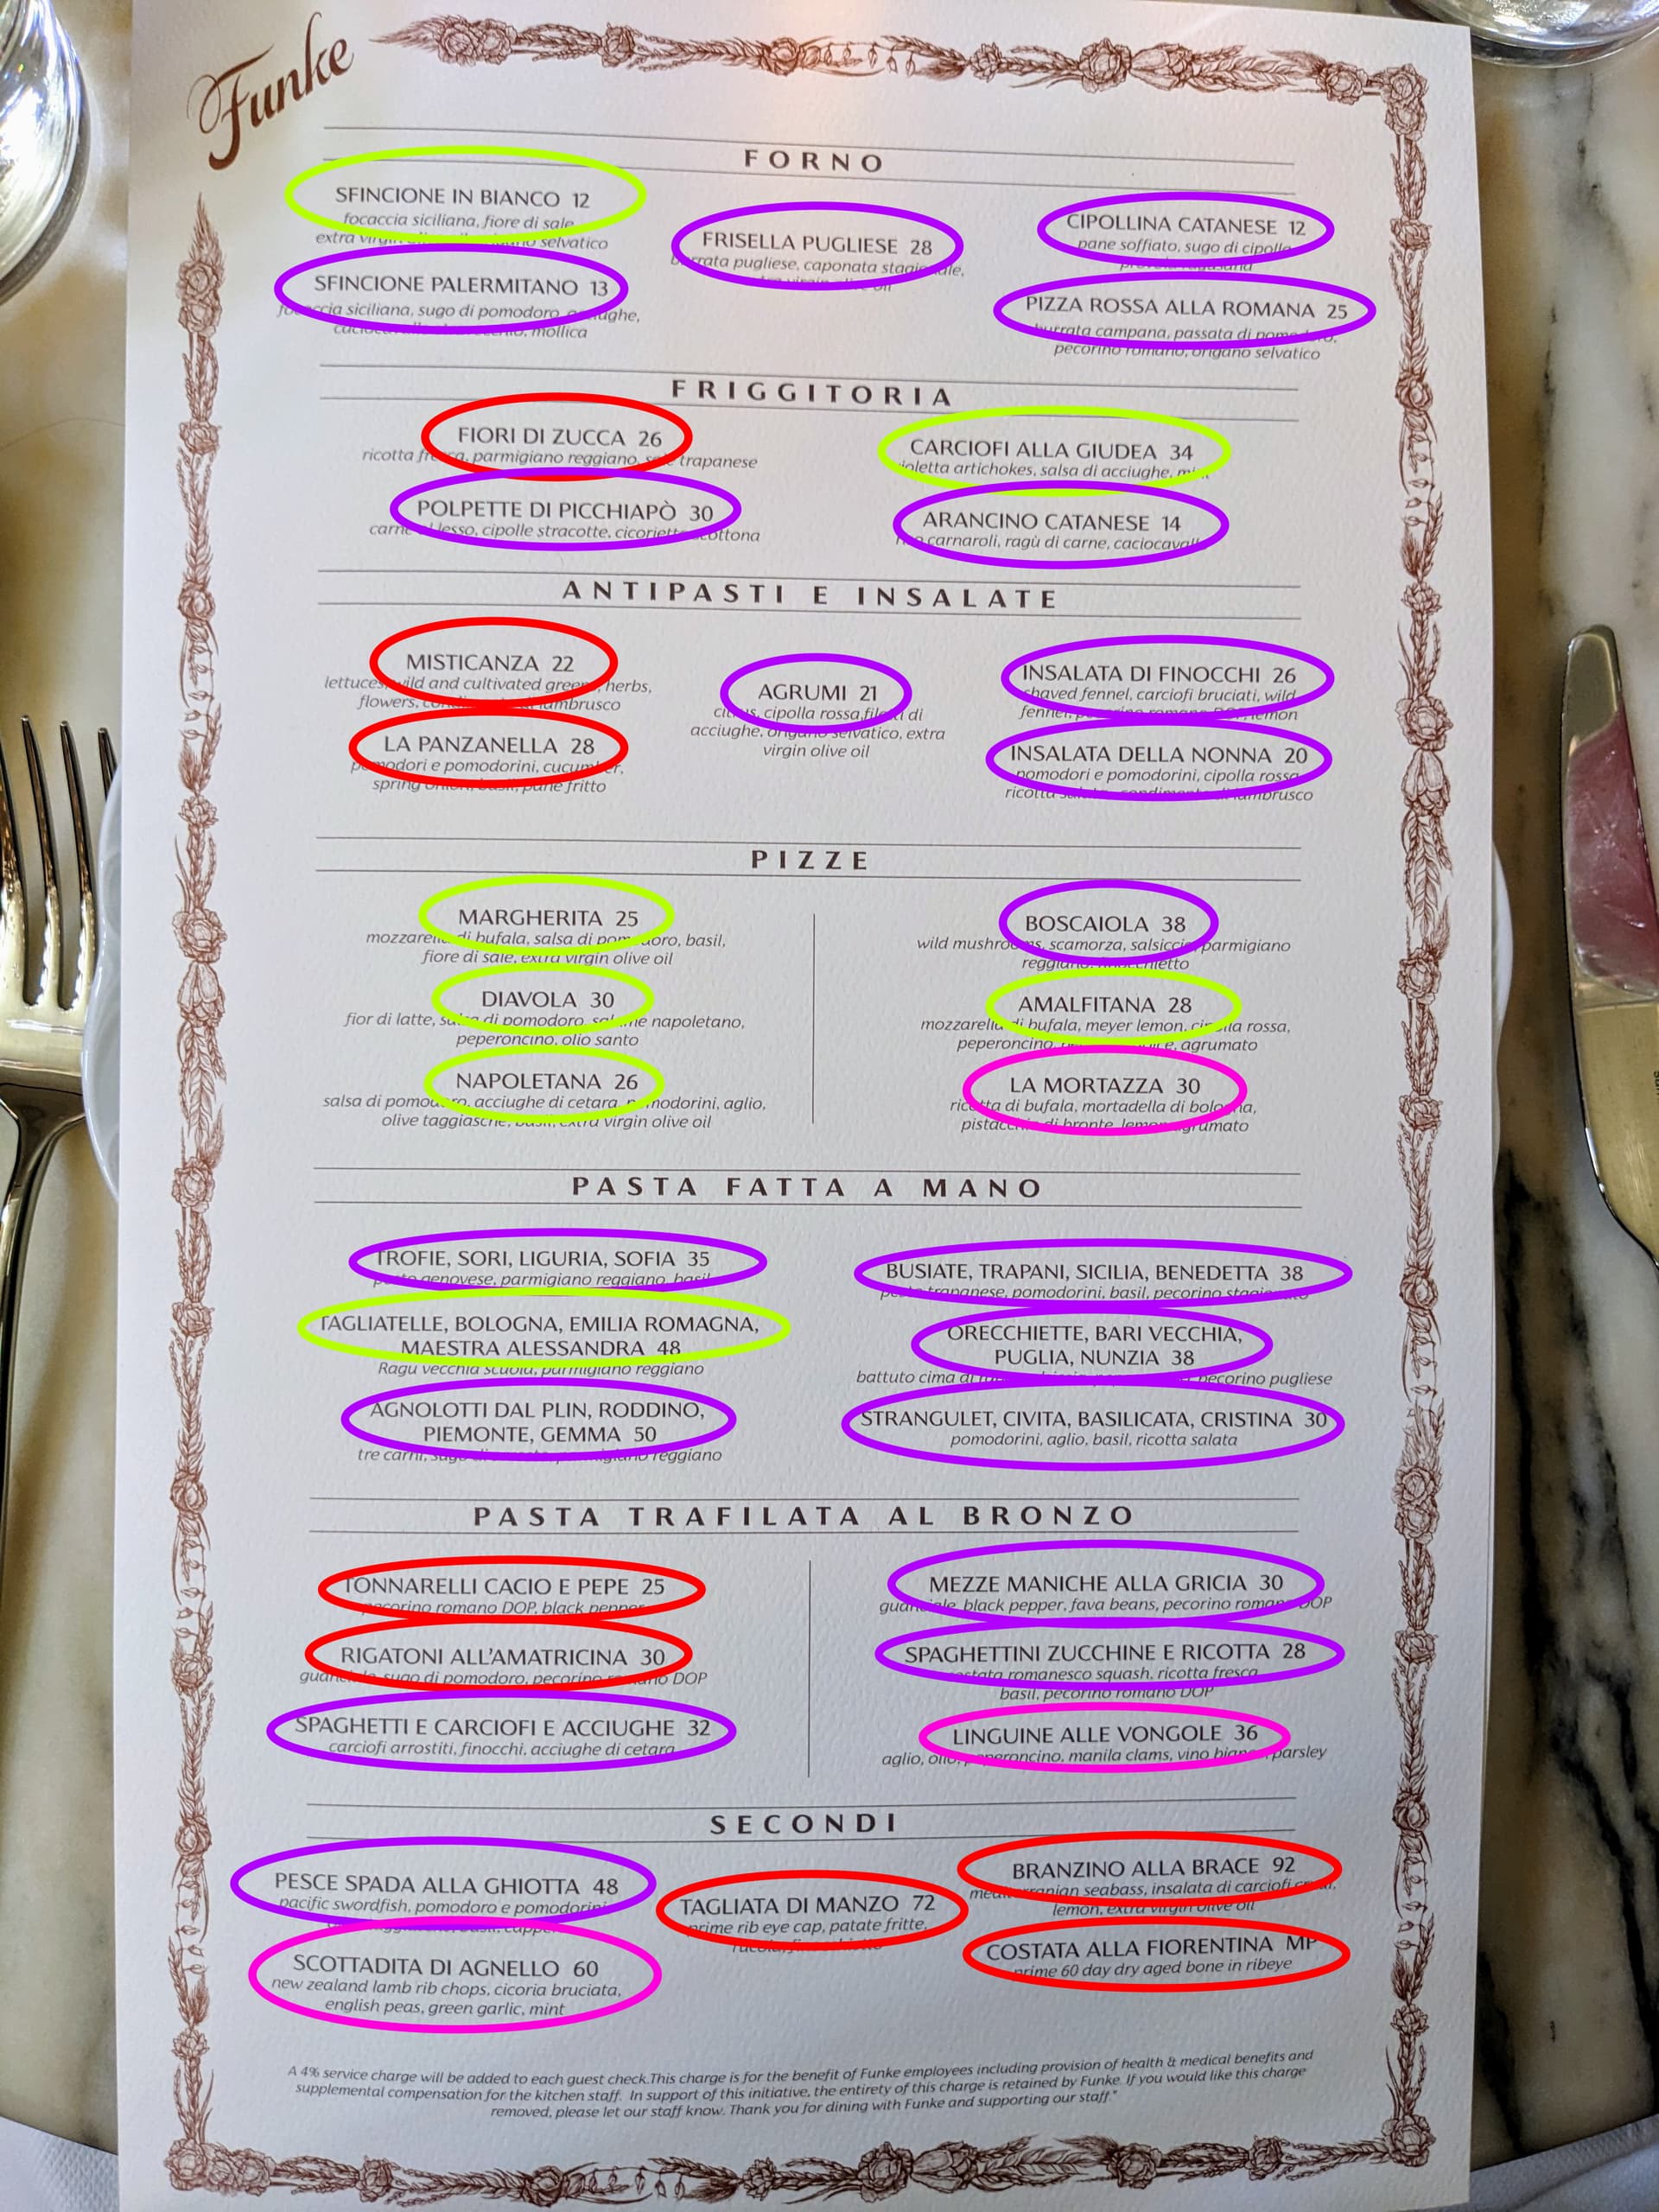 Funke
FORNO
SFINCIONE IN BIANCO 12
focaccia siciliana, fiore di sale
extra selvatico
SFINCIONE PALERMITANO 13
siciliana, sugo di pomodoro,
mollica
FRISELLA PUGLIESE 28
pugliese, caponata
CIPOLLINA CATANESE 12
pane soffiato, sugo di cipolla
PIZZA ROSSA ALLA ROMANA 25
burrata campana, passata di
pecorino romano, origano selvatico
FRIGGITORIA
FIORI DI ZUCCA 26
ricotta parmigiano reggiano, trapanese
CARCIOFI ALLA GIUDEA 34
violetta artichokes, salsa di acciughe,
POLPETTE DI PICCHIAPÒ 30
lesso, cipolle stracotte,
ARANCINO CATANESE 14
carnaroli, ragù di carne, caciocavallo
ANTIPASTI E INSALATE
MISTICANZA 22
lettuces, wild and cultivated greens, herbs,
flowers, lambrusco
LA PANZANELLA 28
pomodori e pomodorini, cucumber,
spring fritto
AGRUMI 21
citrus, cipolla rossa, di
acciughe, origano selvatico, extra
virgin olive oil
INSALATA DI FINOCCHI 26
shaved fennel, carciofi bruciati, wild
fennel, lemon
INSALATA DELLA NONNA 20
pomodori e pomodorini, cipolla rossa
ricotta lambrusco
PIZZE
MARGHERITA 25
mozzarella di bufala, salsa di pomodoro, basil,
fiore di sale, extra virgin olive oil
DIAVOLA 30
fior di latte, salsa di pomodoro, salame napoletano,
peperoncino, olio santo
NAPOLETANA 26
salsa di pomodoro, acciughe di cetara, pomodorini, aglio,
olive taggiasche, basil, extra virgin olive oil
BOSCAIOLA 38
wild mushrooms, scamorza, salsiccia, parmigiano
reggiano,
AMALFITANA 28
mozzarella di bufala, meyer lemon, cipolla rossa,
peperoncino, agrumato
LA MORTAZZA 30
ricotta di bufala, mortadella di bologna,
pistacchio di bronte, lemon agrumato
PASTA FATTA A MANO
TROFIE, SORI, LIGURIA, SOFIA 35
pesto genovese, parmigiano reggiano, basil
TAGLIATELLE, BOLOGNA, EMILIA ROMAGNA,
MAESTRA ALESSANDRA 48
Ragu vecchia scuola, parmigiano reggiano
AGNOLOTTI DAL PLIN, RODDINO,
PIEMONTE, GEMMA 50
tre carni, reggiano
BUSIATE, TRAPANI, SICILIA, BENEDETTA 38
pesto trapanese, pomodorini, basil, pecorino
ORECCHIETTE, BARI VECCHIA,
PUGLIA, NUNZIA 38
battuto cima di pecorino pugliese
STRANGULET, CIVITA, BASILICATA, CRISTINA 30
pomodorini, aglio, basil, ricotta salata
PASTA TRAFILATA AL BRONZO
TONNARELLI CACIO E PEPE 25
pecorino romano DOP, black pepper
RIGATONI ALL'AMATRICINA 30
guanciale, sugo di pomodoro, pecorino romano DOP
SPAGHETTI E CARCIOFI E ACCIUGHE 32
carciofi arrostiti, finocchi, acciughe di cetara
MEZZE MANICHE ALLA GRICIA 30
guanciale, black pepper, fava beans, pecorino romano DOP
SPAGHETTINI ZUCCHINE E RICOTTA 28
romanesco squash, ricotta fresca
basil, pecorino romano DOP
LINGUINE ALLE VONGOLE 36
aglio, olio, peperoncino, manila clams, vino bianco, parsley
SECONDI
PESCE SPADA ALLA GHIOTTA 48
pacific swordfish, pomodoro e pomodorini
SCOTTADITA DI AGNELLO 60
new zealand lamb rib chops, cicoria bruciata,
english peas, green garlic, mint
TAGLIATA DI MANZO 72
prime rib eye cap, patate fritte,
BRANZINO ALLA BRACE 92
mediterranian seabass, insalata di carciofi
lemon, extra virgin olive oil
COSTATA ALLA FIORENTINA MP
prime 60 day dry aged bone in ribeye
A 4% service charge will be added to each guest check.This charge is for the benefit of Funke employees including provision of health & medical benefits and
supplemental compensation for the kitchen staff. In support of this initiative, the entirety of this charge is retained by Funke. If you would like this charge
removed, please let our staff know. Thank you for dining with Funke and supporting our staff."